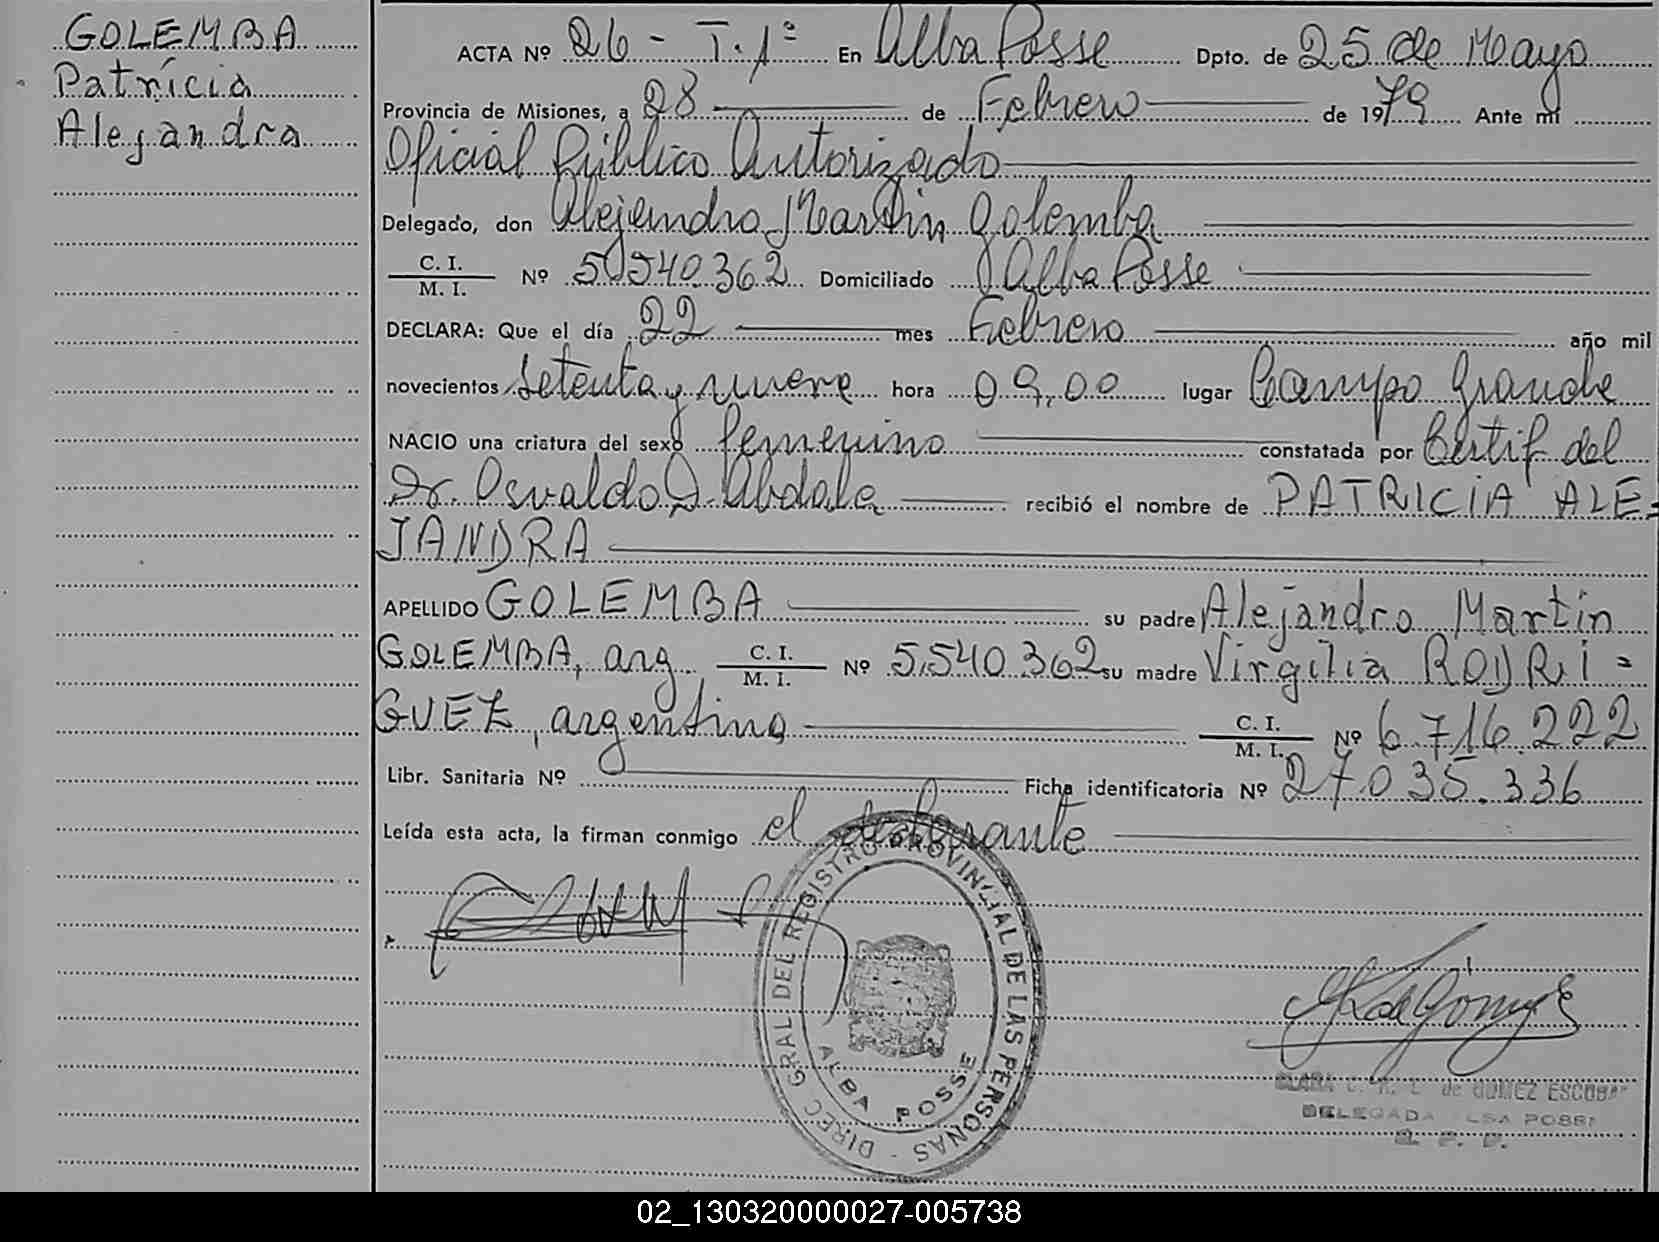 GOLEMBA
Patrícia
Alejandra
ACTA Nº 26 - T. 1º En Alba Posse Dpto. de 25 de Mayo
Provincia de Misiones, a 28 de Febrero de 1979 Ante mi
Oficial Público Autorizado
Delegado, don Alejandro Martin Golemba
C. I. / M. I. Nº 5.540.362 Domiciliado Alba Posse
DECLARA: Que el día 22 mes Febrero año mil
novecientos setenta y nueve hora 09,00 lugar Campo Grande
NACIO una criatura del sexo femenino constatada por Certif del
Dr. Osvaldo D. Abdala recibió el nombre de PATRICIA ALE=
JANDRA
APELLIDO GOLEMBA su padre Alejandro Martin
GOLEMBA, arg C. I. / M. I. Nº 5.540.362 su madre Virgilia RODRI=
GUEZ, argentina C. I. / M. I. Nº 6.716.222
Libr. Sanitaria Nº Ficha identificatoria Nº 27.035.336
Leída esta acta, la firman conmigo el declarante
DIREC GRAL DEL REGISTRO PROVINCIAL DE LAS PERSONAS -
ALBA POSSE
CLARA de GOMEZ ESCOBAR
DELEGADA
02_130320000027-005738